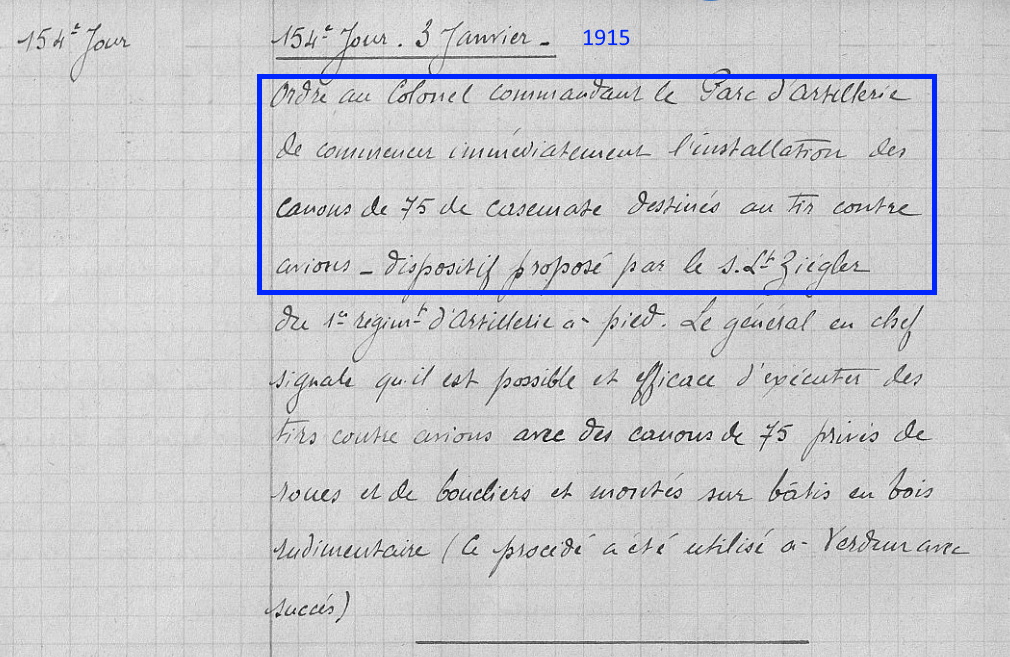 154e Jour
154e Jour . 3 Janvier - 1915
Ordre au Colonel commandant le Parc d'Artillerie
de commencer immédiatement l'installation des
canons de 75 de casemate destinés au tir contre
avions - dispositif proposé par le s. Lt Ziegler
du 1er régimt d'Artillerie à pied. Le général en chef
signale qu'il est possible et efficace d'exécuter des
tirs contre avions avec des canons de 75 privés de
roues et de boucliers et montés sur bâtis en bois
rudimentaire (Ce procédé a été utilisé à Verdun avec
succès)